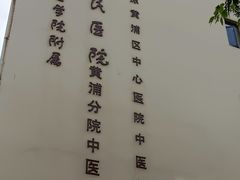 黄浦区中心医院中医
民医院黄浦分院中医
学院附属